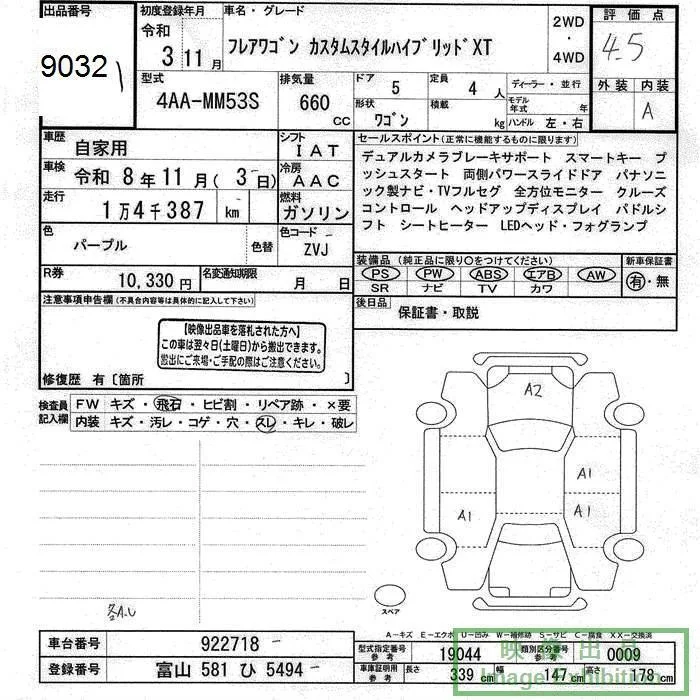 出品番号
9032
初度登録年月
令和
3 11月
車名・グレード
フレアワゴン カスタムスタイルハイブリッドXT
2WD
・
4WD
評価点
4.5
外装 内装
A
型式
4AA-MM53S
排気量
660
CC
ドア
5
定員
4 人
ディーラー・並行
形状
ワゴン
積載
kg
モデル年式 年
ハンドル 左・右
車歴
自家用
シフト
IAT
車検
令和 8年11月(3日)
冷房
AAC
走行
1万4千387 km
燃料
ガソリン
色
パープル
色替
色コード
ZVJ
R券
10,330 円
名変通知期限
月 日
セールスポイント(正常に機能するものに限ります)
デュアルカメラブレーキサポート スマートキー プ
ッシュスタート 両側パワースライドドア パナソニ
ック製ナビ・TVフルセグ 全方位モニター クルーズ
コントロール ヘッドアップディスプレイ パドルシ
フト シートヒーター LEDヘッド・フォグランプ
装備品(純正品に限り〇をつけてください)
PS PW ABS エアB AW
SR ナビ TV カワ
新車保証書
有・無
後日品
保証書・取説
注意事項申告欄(不具合内容等は具体的に記入して下さい)
【映像出品車を落札された方へ】
この車は翌々日(土曜日)から搬出できます。
搬出にご来場・ご手配の際はご注意ください。
修復歴 有〔箇所 〕
検査員
記入欄
FW キズ・飛石・ヒビ割・リペア跡・×要
内装 キズ・汚レ・コゲ・穴・スレ・キレ・破レ
A2
A1
A1
A1
スペア
各A.U
A-キズ E-エクボ U-凹み W-補修跡 S-サビ C-腐食 XX-交換済
車台番号
922718
登録番号
富山 581 ひ 5494
型式指定番号
参考
19044
類別区分番号
参考
0009
車庫証明用
参考
長さ
339 cm
幅
147 cm
高さ
178 cm
映像出品
Image Exhibition